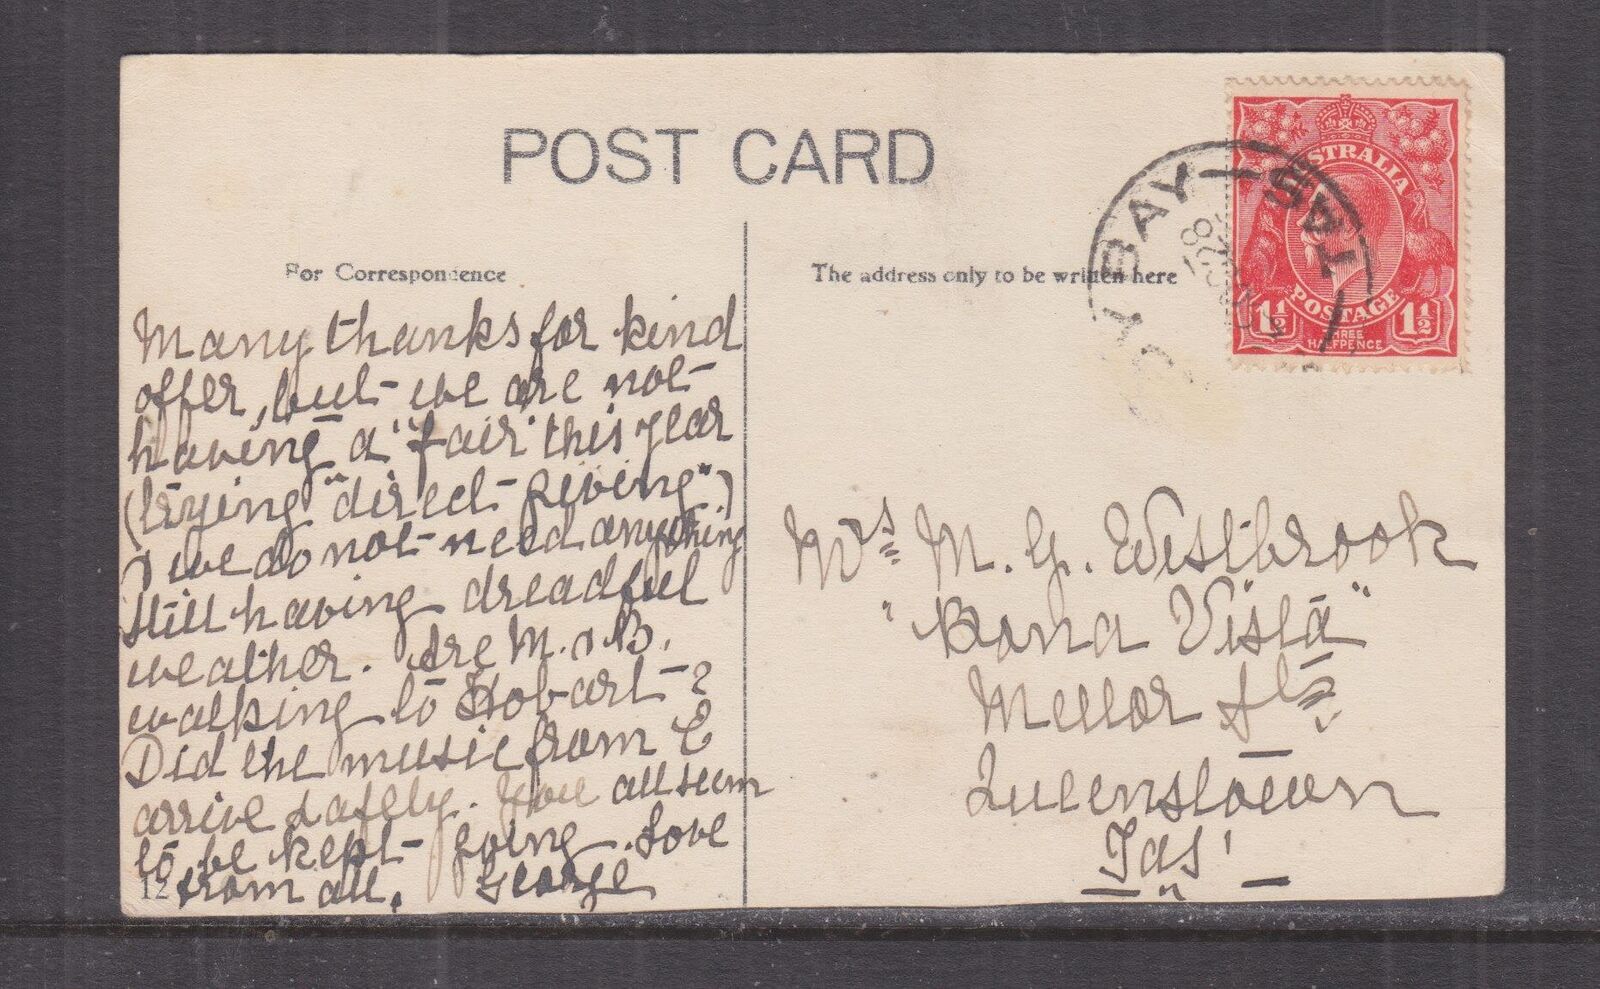 POST CARD
For Correspondence
The address only to be written here
Many thanks for kind
offer, but we are not
having a "fair" this year
(trying "direct giving")
& we do not need anything
Still having dreadful
weather. Are M. & B.
walking to Hobart?
Did the music from E
arrive safely. You all seem
to be kept going. Love
from all. George
12
AUSTRALIA
POSTAGE
1½ 1½
THREE
HALFPENCE
BAY
TAS
28
Mrs M. G. Westbrook
"Bona Vista"
Mellor St
Queenstown
Tas'